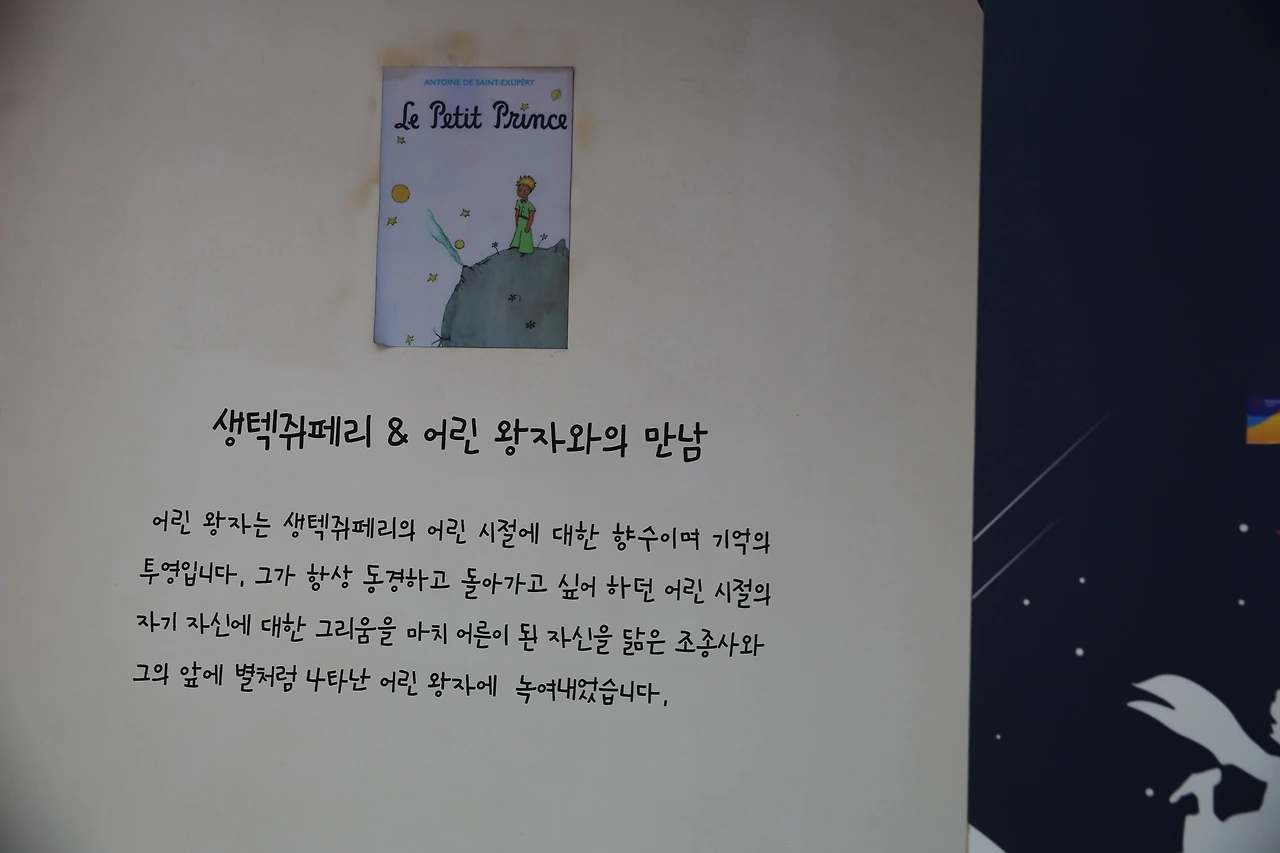 ANTOINE DE SAINT-EXUPÉRY
Le Petit Prince
생텍쥐페리 & 어린 왕자와의 만남
어린 왕자는 생텍쥐페리의 어린 시절에 대한 향수이며 기억의
투영입니다. 그가 항상 동경하고 돌아가고 싶어 하던 어린 시절의
자기 자신에 대한 그리움을 마치 어른이 된 자신을 닮은 조종사와
그의 앞에 별처럼 나타난 어린 왕자에 녹여내었습니다.